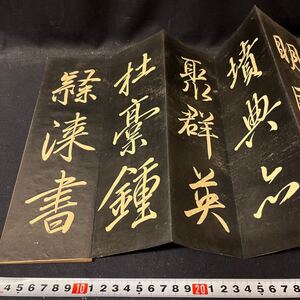 明
墳典亦
聚群英
杜稾鍾
隸漆書
4 5 6 7 8 9 10 1 2 3 4 5 6 7 8 9 20 1 2 3 4 5 6 7 8 9